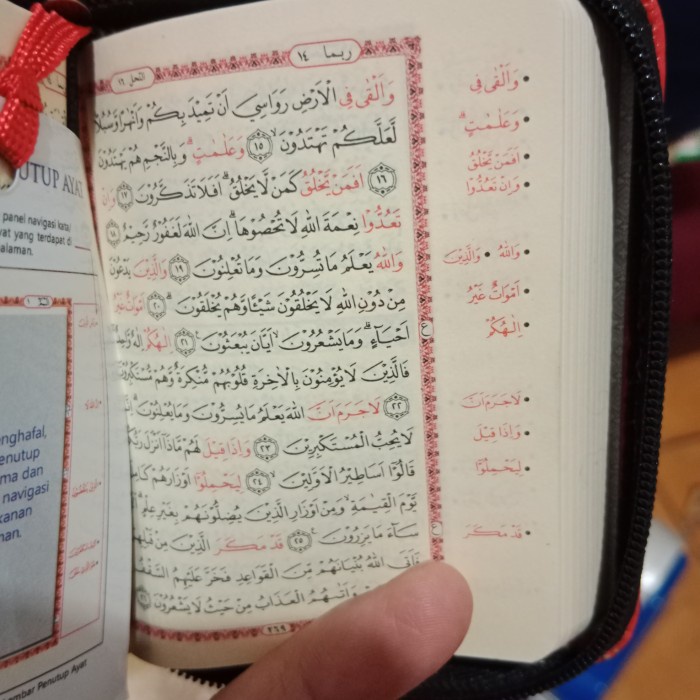 ربما ١٤
النحل ١٦
وَاَلْقٰى فِى الْاَرْضِ رَوَاسِيَ اَنْ تَمِيْدَ بِكُمْ وَاَنْهٰرًا وَّسُبُلًا
لَّعَلَّكُمْ تَهْتَدُوْنَۙ ١٥ وَعَلٰمٰتٍۗ وَبِالنَّجْمِ هُمْ يَهْتَدُوْنَ
١٦ اَفَمَنْ يَّخْلُقُ كَمَنْ لَّا يَخْلُقُۗ اَفَلَا تَذَكَّرُوْنَ ١٧ وَاِنْ
تَعُدُّوْا نِعْمَةَ اللّٰهِ لَا تُحْصُوْهَاۗ اِنَّ اللّٰهَ لَغَفُوْرٌ رَّحِيْمٌ ١٨
وَاللّٰهُ يَعْلَمُ مَا تُسِرُّوْنَ وَمَا تُعْلِنُوْنَ ١٩ وَالَّذِيْنَ يَدْعُوْنَ
مِنْ دُوْنِ اللّٰهِ لَا يَخْلُقُوْنَ شَيْـًٔا وَّهُمْ يُخْلَقُوْنَۗ ٢٠ اَمْوَاتٌ غَيْرُ
اَحْيَاۤءٍۗ وَمَا يَشْعُرُوْنَۙ اَيَّانَ يُبْعَثُوْنَ ٢١ اِلٰهُكُمْ اِلٰهٌ وَّاحِدٌ
فَالَّذِيْنَ لَا يُؤْمِنُوْنَ بِالْاٰخِرَةِ قُلُوْبُهُمْ مُّنْكِرَةٌ وَّهُمْ مُّسْتَكْبِرُوْنَ
٢٢ لَاجَرَمَ اَنَّ اللّٰهَ يَعْلَمُ مَا يُسِرُّوْنَ وَمَا يُعْلِنُوْنَ
لَا يُحِبُّ الْمُسْتَكْبِرِيْنَ ٢٣ وَاِذَا قِيْلَ لَهُمْ مَّاذَآ اَنْزَلَ
قَالُوْٓا اَسَاطِيْرُ الْاَوَّلِيْنَ ٢٤ لِيَحْمِلُوْٓا اَوْزَارَهُمْ
يَّوْمَ الْقِيٰمَةِ وَمِنْ اَوْزَارِ الَّذِيْنَ يُضِلُّوْنَهُمْ بِغَيْرِ عِلْمٍ
سَاۤءَ مَا يَزِرُوْنَ ٢٥ قَدْ مَكَرَ الَّذِيْنَ مِنْ قَبْلِهِمْ
فَاَتَى اللّٰهُ بُنْيَانَهُمْ مِّنَ الْقَوَاعِدِ فَخَرَّ عَلَيْهِمُ السَّقْفُ
وَاَتٰىهُمُ الْعَذَابُ مِنْ حَيْثُ لَا يَشْعُرُوْنَ ٢٦
٢٦٩
• وَاَلْقٰى فِى
• وَعَلٰمٰتٍۗ
• اَفَمَنْ يَّخْلُقُ
• وَاِنْ تَعُدُّوْا
• وَاللّٰهُ • وَالَّذِيْنَ
• اَمْوَاتٌ غَيْرُ
• اِلٰهُكُمْ
• لَاجَرَمَ اَنَّ
• وَاِذَا قِيْلَ
• لِيَحْمِلُوْٓا
• قَدْ مَكَرَ
UTUP AYAT
panel navigasi kata
yat yang terdapat di
alaman.
enghafal,
enutup
ma dan
navigasi
kanan
man.
mbar Penutup Ayat